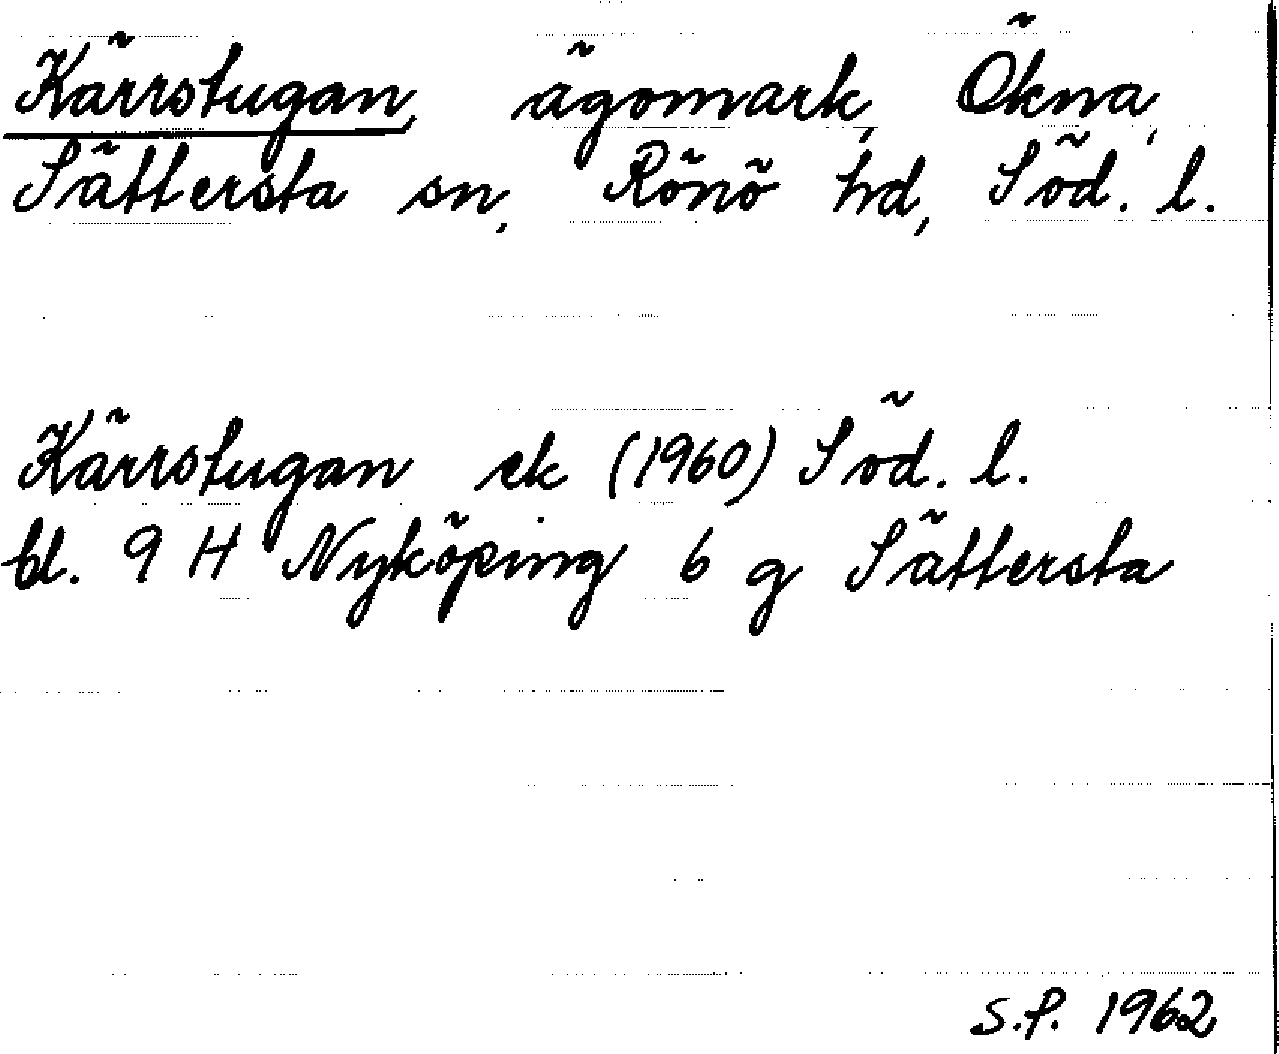 Kärrstugan, ägomark, Ökna,
Sättersta sn, Rönö hd, Söd. l.
Kärrstugan ek (1960) Söd. l.
bl. 9 H Nyköping 6 g Sättersta
S.P. 1962